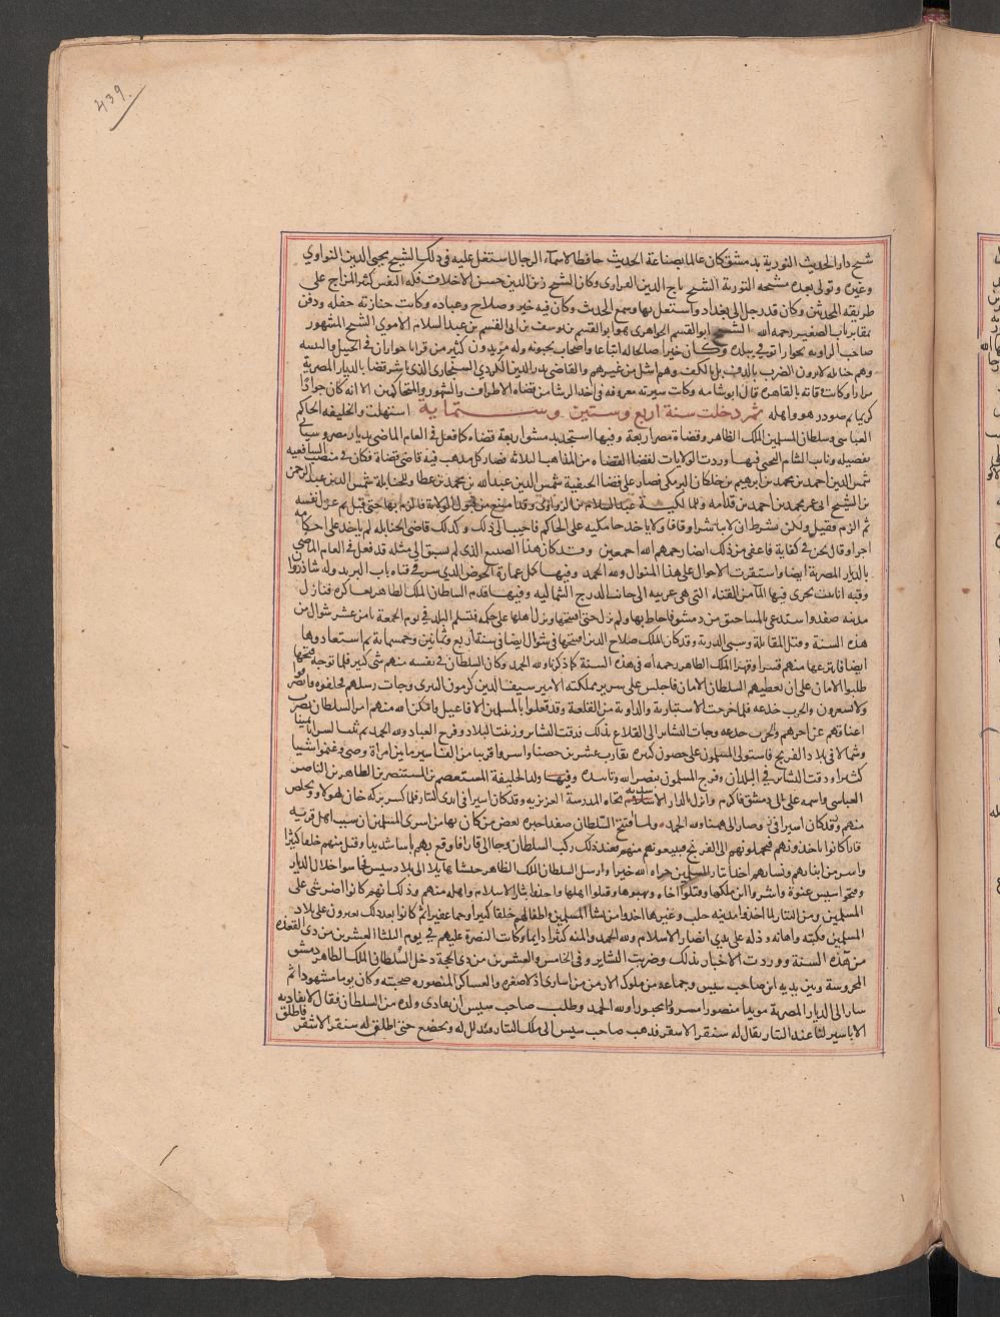 439
شيخ دار الحديث النورية بدمشق كان عالما بصناعة الحديث حافظا لاسماء الرجال اشتغل عليه في ذلك الشيخ محيى الدين النواوي
وغيره وتولى بعده مشيخه النورية الشيخ تاج الدين الفزاري وكان الشيخ زين الدين حسن الاخلاق فكه النفس كثير المزاح على
طريقه المحدثين وكان قد رحل الى بغداد واشتغل بها وسمع الحديث وكان فيه خير وصلاح وعباده وكانت جنازته حفله ودفن
بمقابر باب الصغير رحمه الله الشيخ ابو القسم الحواهرى هو ابو القسم بن يوسف بن ابى القسم بن عبد السلام الاموى الشيخ المشهور
صاحب الزاويه بحوارا توفي ببلده وكان خيرا صالحا له اتباعا واصحاب يحبونه وله مريدون كثير من قرايا حوران في الجبل والبثنيه
وهم حنابله لا يرون الضرب بالدف بل بالكف وهم امثل من غيرهم والقاضى بدر الدين الكردي السنجارى الذى باشر قضا بالديار المصرية
مرارا وكانت وفاته بالقاهره قال ابو شامه وكانت سيرته معروفه في اخذ الرشا من قضاه الاطراف والشهود والمتحاكمين الا انه كان جوادا
كريما ثم صودر هو واهله ثم دخلت سنة اربع وستين وستماية استهلت والخليفه الحاكم
العباسى وسلطان المسلمين الملك الظاهر وقضاة مصر اربعة وفيها استجد بدمشق اربعة قضاه كما فعل في العام الماضى بديار مصر وسياتى
تفصيله ونايب الشام النجيبى فيها وردت الولايات لقضا القضاه من المذاهب الثلاثه فصار كل مذهب فيه قاضى قضاة فكان في منصب الشافعيه
شمس الدين احمد بن محمد بن ابراهيم بن خلكان البرمكى فصار على قضا الحنفية شمس الدين عبد الله بن محمد بن عطا وللحنابلة شمس الدين عبد الرحمن
بن الشيخ ابى عمر محمد بن احمد بن قدامه وللمالكية عبد السلام بن الزواوى وقد امتنع من قبول الولاية فالزم بها حتى قبل ثم عزل نفسه
ثم الزم فقبل ولكن بشرط ان لا يباشر اوقافا ولا ياخد جامكيه على الحاكم فاجيب الى ذلك وكذلك قاضى الحنابله لم ياخد على احكامه
اجرا وقال نحن في كفاية فاعفى من ذلك ايضا رحمهم الله اجمعين وقد كان هذا الصنيع الذى لم يسبق الى مثله قد فعل في العام الماضى
بالديار المصرية ايضا واستقرت الاحوال على هذا المنوال ولله الحمد وفيها كمل عمارة الحوض الذى شرقى قناه باب البريد وله شاذروا
وقبه انابيب يجرى فيها الما من القناه التى هى غربيه الى جانب الدرج الشماليه وفيها قدم السلطان الملك الظاهر بعساكره فنازل
مدينه صفد واستدعى بالمناجيق من دمشق فاحاط بها ولم يزل حتى افتتحها ونزل اهلها على حكمه فتسلم البلد في يوم الجمعة ثامن عشر شوال من
هذه السنة وقتل المقاتلة وسبى الذرية وقد كان الملك صلاح الدين افتتحها في شوال ايضا في سنة اربع وثمانين وخمسماية ثم استعادوها
ايضا فانتزعها منهم قسرا وقهرا الملك الظاهر رحمه الله في هذه السنة كما ذكرنا ولله الحمد وكان السلطان في نفسه منهم شى كبير فلما توجه لفتحها
طلبوا الامان على ان يعطيهم السلطان الامان فاجلس على سرير مملكته الامير سيف الدين كرمون التترى وجات رسلهم فحلفوه وانصرفوا
ولا يشعرون والحرب خدعه فلما خرجت الاستبارية والداوية من القلعة وقد فعلوا بالمسلمين الافاعيل وامكن الله منهم امر السلطان بضرب
اعناقهم عن اخرهم والحرب خدعه وجات البشاير الى القلاع بذلك فدقت البشاير وزينت البلاد وفرح العباد ولله الحمد ثم بث السرايا يمينا
وشمالا في بلاد الفرنج فاستولى المسلمون على حصون كثيره تقارب عشرين حصنا واسروا قريبا من الف اسير ما بين امراة وصبى وغنموا شيا
كثيرا ودقت البشاير في البلدان وفرح المسلمون بنصر الله وتاييده وفيها ولد الخليفة المستعصم بن المستنصر بن الظاهر بن الناصر
العباسى واسمه على الى دمشق فاكرم وانزل بالدار الاسديه تجاه المدرسة العزيزيه وقد كان اسيرا في ايدى التتار فلما كسر بركه خان لهولاوو تخلص
منهم وقد كان اسيرا في وصار الى هينا ولله الحمد ولما فتح السلطان صفد اخبره بعض من كان بها من اسرى المسلمين ان سبب اسرهم اهل قرية
قارا كانوا ياخذونهم فيحملونهم الى الفرنج فيبيعونهم منهم فعند ذلك ركب السلطان وجا الى قارا فاوقع بهم باسا شديدا وقتل منهم خلقا كثيرا
واسر من ابنايهم ونسايهم اخذا بثار المسلمين جزاه الله خيرا وارسل السلطان الملك الظاهر جيشا هايلا الى بلاد سيس فجاسوا خلال الديار
وفتحوا سيس عنوة واسروا ابن ملكها وقتلوا اخاه ونهبوها وقتلوا اهلها واخذوا بثار الاسلام واهله منهم وذلك انهم كانوا اضر شى على
المسلمين زمن التتار لما اخذوا مدينه حلب وغيرها اخذوا من نسا المسلمين واطفالهم خلقا كثيرا وجما غفيرا ثم كانوا بعد ذلك يغيرون على بلاد
المسلمين فكبته واهانه وذله على يدى انصار الاسلام ولله الحمد والمنه كثيرا دايما وكانت النصرة عليهم في يوم الثلثا العشرين من ذى القعده
من هذه السنة ووردت الاخبار بذلك وضربت البشاير وفي الخامس والعشرين من ذى الحجة دخل السلطان الملك الظاهر دمشق
المحروسة وبين يديه ابن صاحب سيس وجماعه من ملوك الارمن من اسارى اذلا صغره والعساكر المنصوره صحبته وكان يوما مشهودا ثم
سار الى الديار المصرية مويدا منصورا مسرورا محبورا ولله الحمد وطلب صاحب سيس ان يفادى ولده من السلطان فقال لا نفاديه
الا باسير لنا عند التتار يقال له سنقر الاشقر فذهب صاحب سيس الى ملك التتار وتذلل له وخضع حتى اطلق له سنقر الاشقر
فاطلق